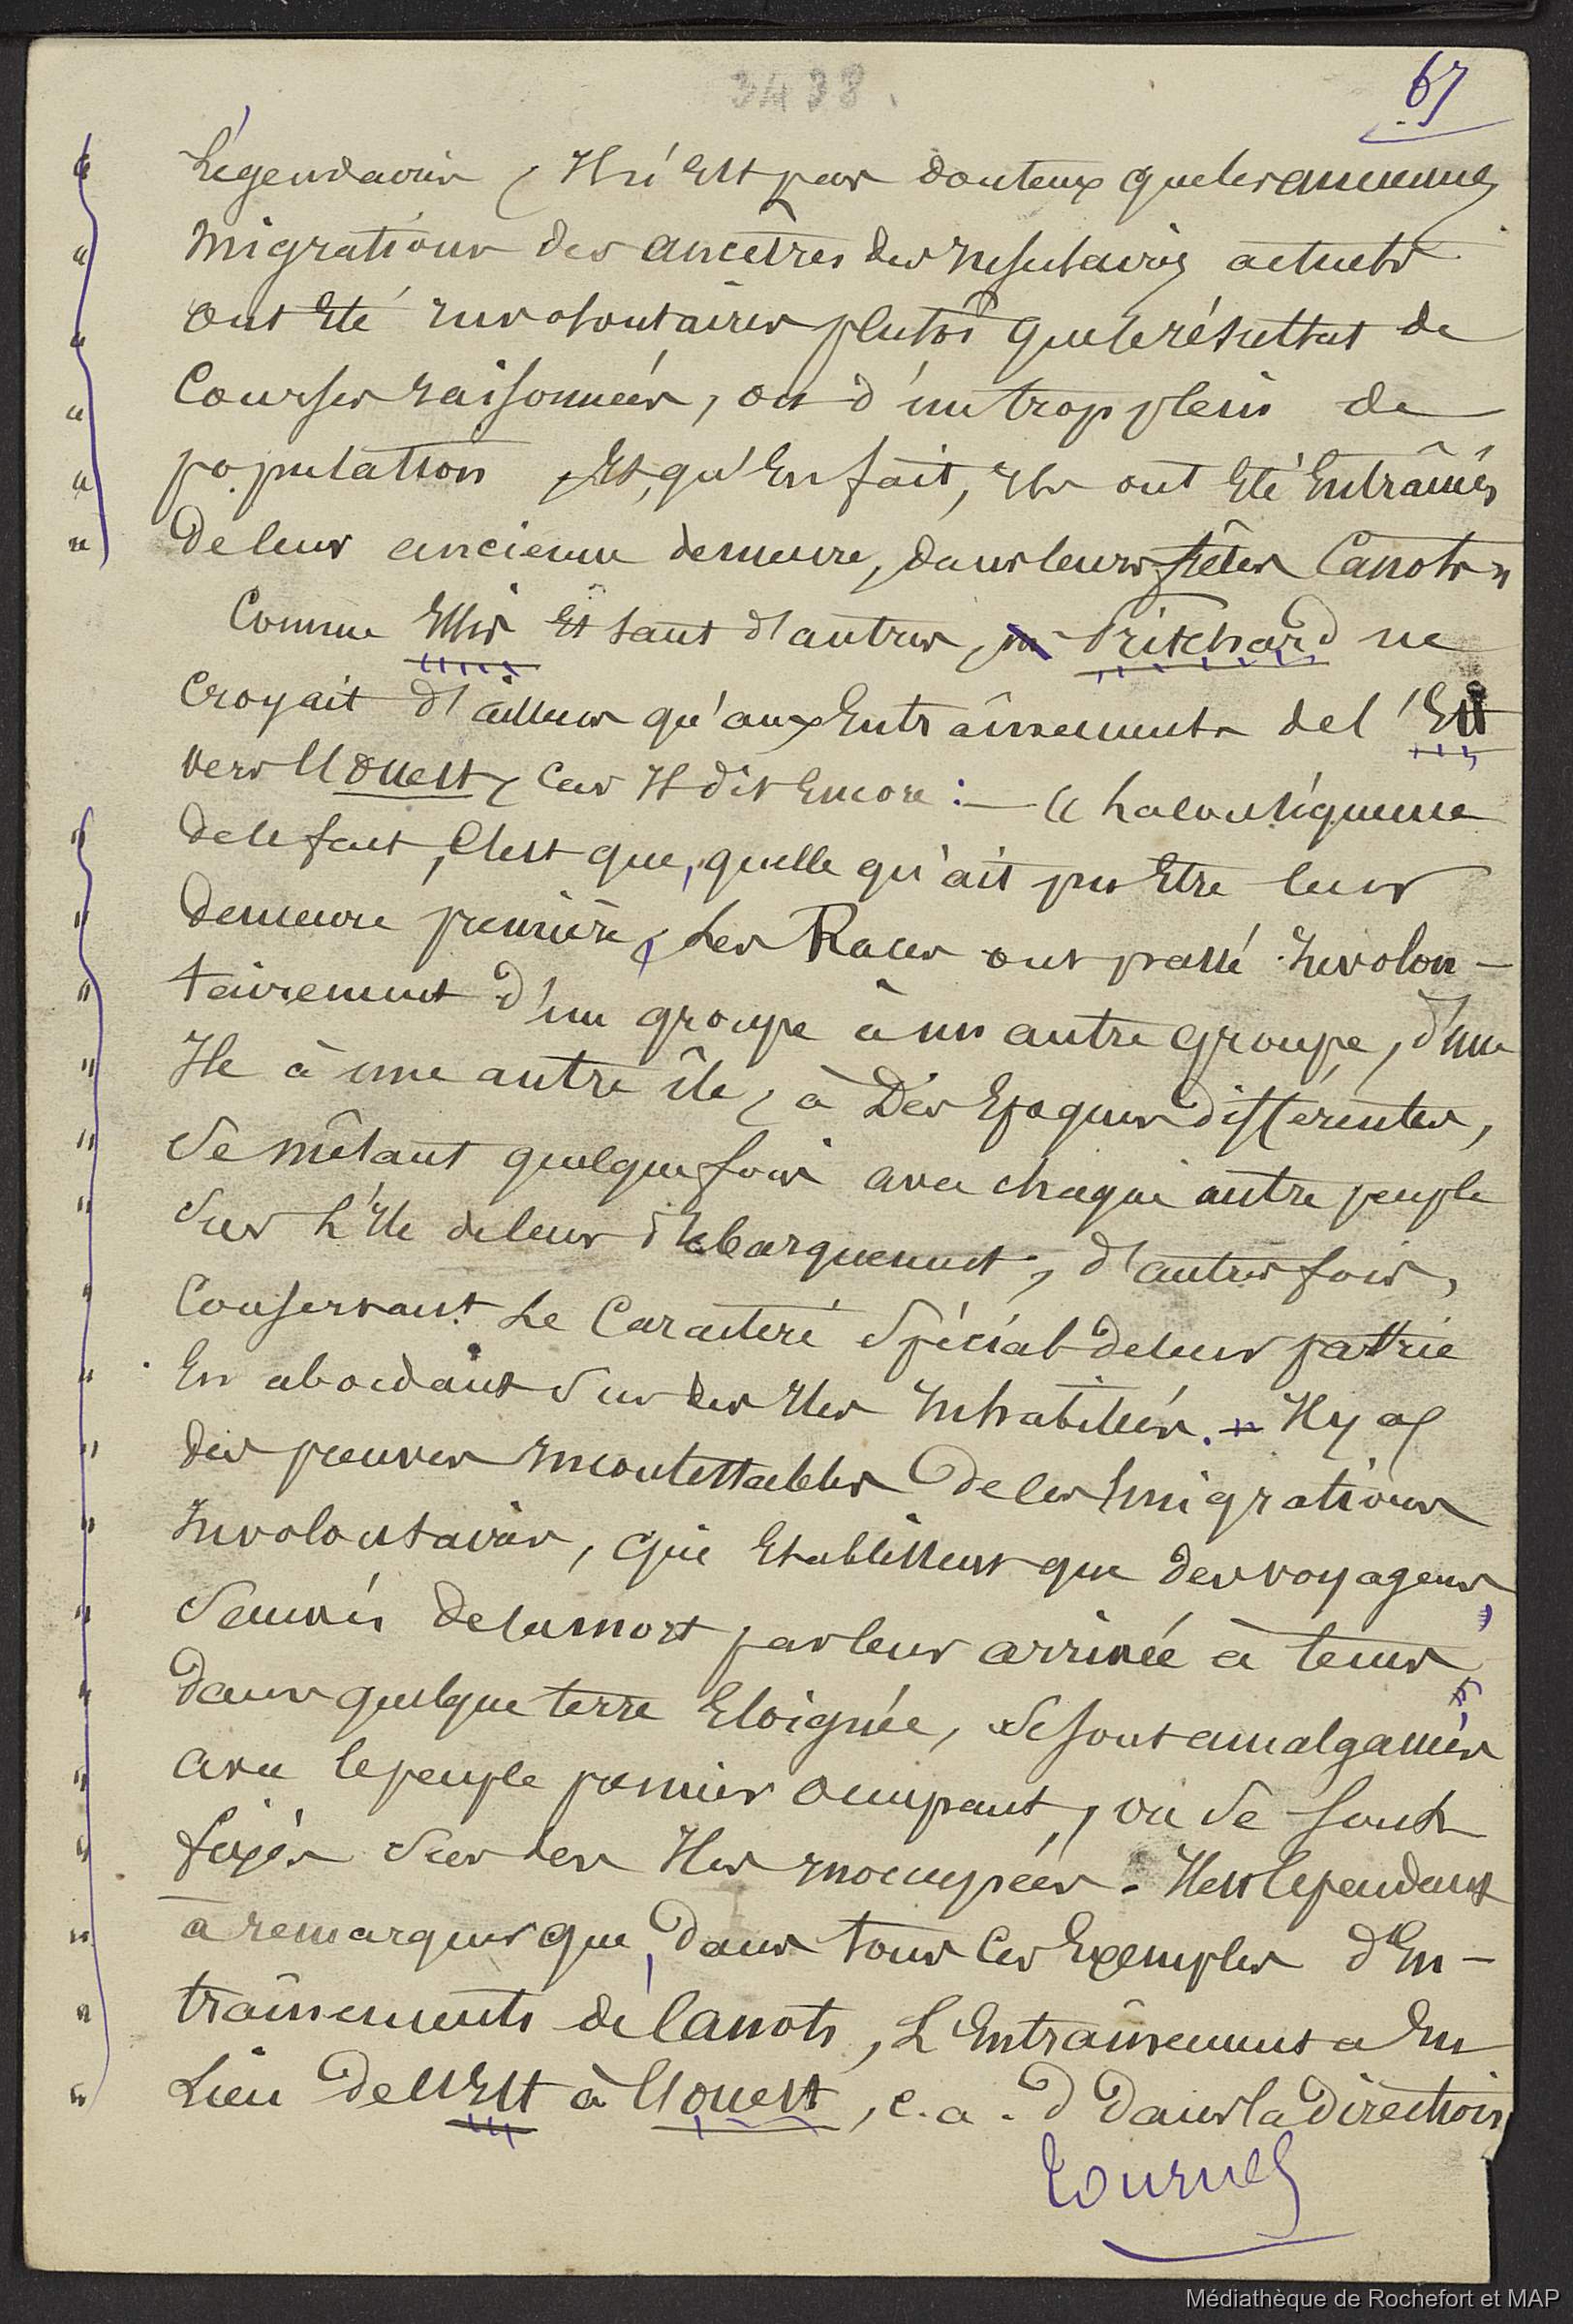 3438.
67
Légendaires, Il n'est pas douteux que les anciennes
migrations des ancêtres des insulaires actuels
ont été involontaires plutôt que le résultat de
Courses raisonnées, ou d'un trop plein de
population, Et, qu'en fait, Ils ont été Entrâinés
de leur ancienne demeure, dans leurs frêles Canots "
Comme Ellis Et tant d'autres, Pritchard ne
Croyait d'ailleurs qu'aux Entraînements de l'Est
vers l'Ouest, Car Il dit Encore :
de le fait, C'est que, quelle qu'ait pu Etre leur
demeure première, Les Races ont passé Involon-
tairement d'un groupe à un autre groupe, d'une
Ile à une autre île, à Des Epoques différentes,
Se mêlant quelquefois avec chaque autre peuple
Sur L'Ile de leur débarquement, d'autres fois,
Conservant Le Caractère Spécial de leur patrie
En abordant Sur des Iles Inhabitées. - Il y a
des preuves Incontestables de ces Emigrations
Involontaires, qui Etablissent que des voyageurs,
Sauvés de la mort par leur arrivée à temps,
dans quelque terre Eloignée, Se sont amalgamés
avec le peuple premier occupant, ou Se sont
fixés Sur des Iles Inoccupées. Il est Cependant
à remarquer que, dans tous Ces Exemples d'En-
traînements de Canots, L'Entraînement a Eu
Lieu de l'Est à l'Ouest, c. a. d dans la direction
Tournez
Médiathèque de Rochefort et MAP